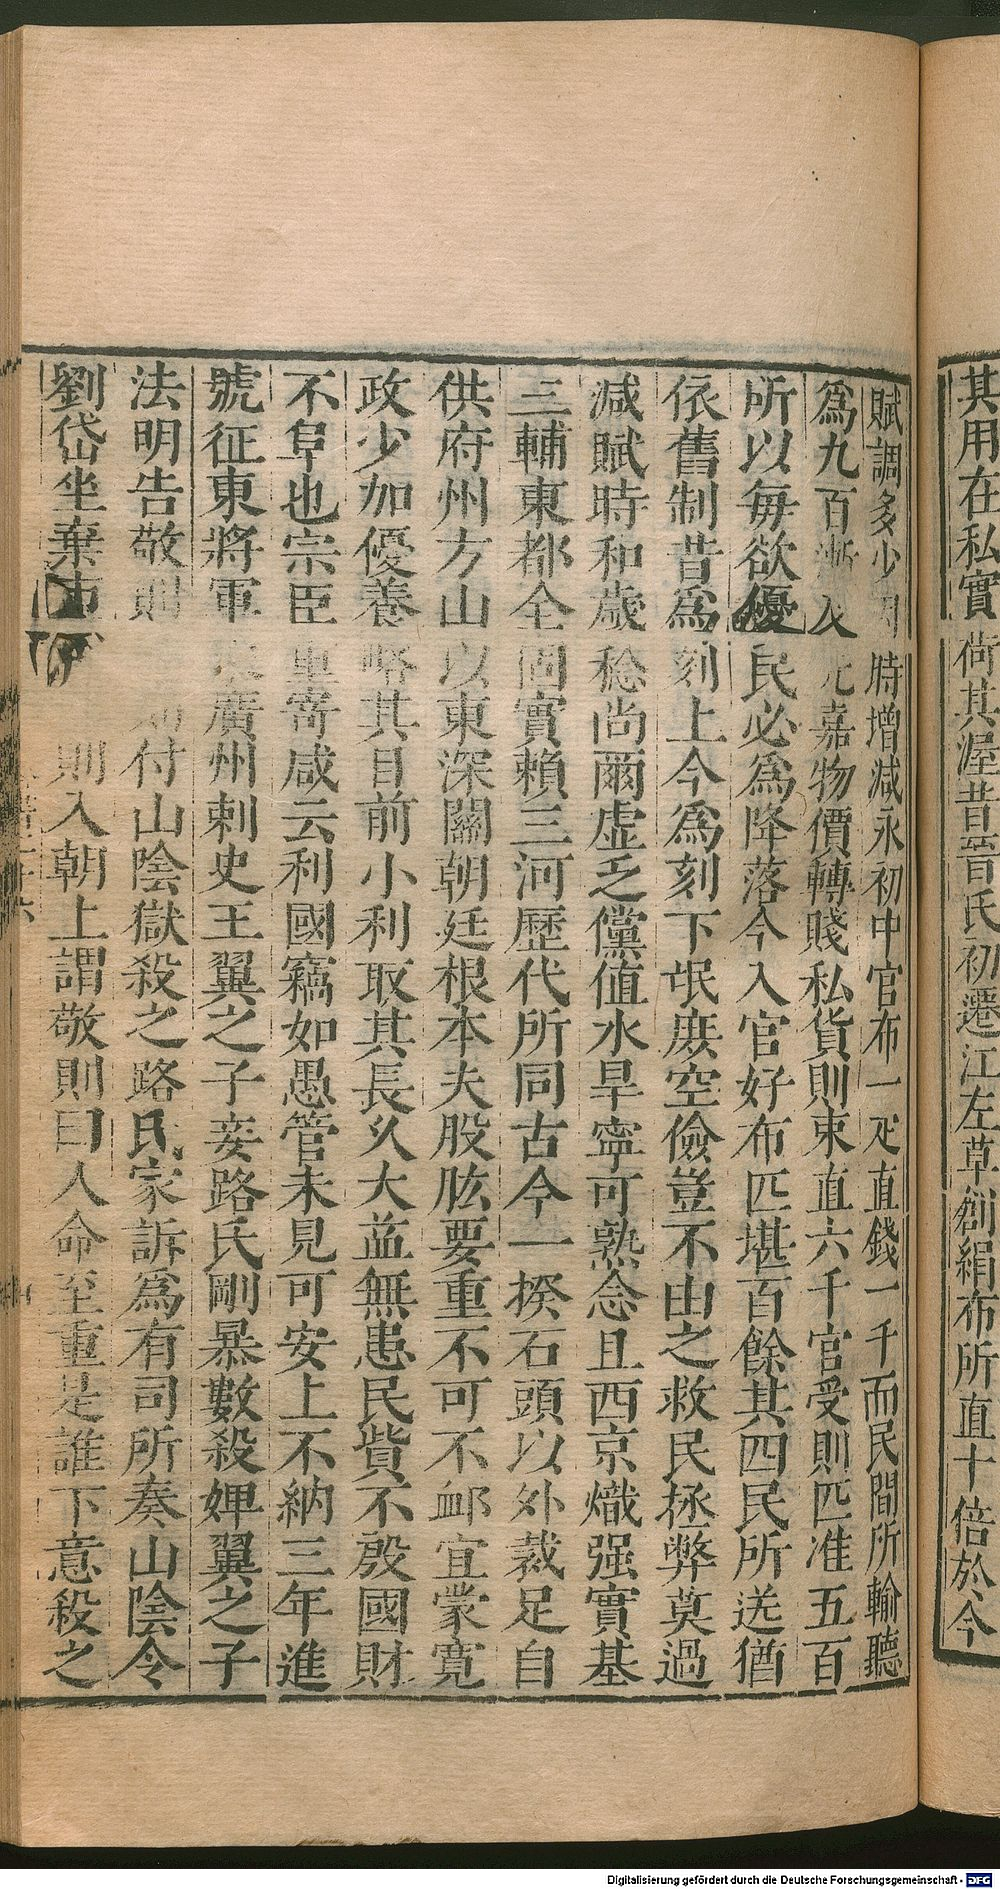 其用在私實荷其渥昔晉氏初遷江左草創絹布所直十倍於今
賦調多少因時增減永初中官布一疋直錢一千而民間所輸聽
爲九百漸及元嘉物價轉賤私貨則束直六千官受則匹准五百
所以每欲優民必爲降落今入官好布匹堪百餘其四民所送猶
依舊制昔爲刻上今爲刻下氓庶空儉豈不由之救民拯弊莫過
減賦時和歲稔尚爾虛乏儻值水旱寧可熟念且西京熾强實基
三輔東都全固實賴三河歷代所同古今一揆石頭以外裁足自
供府州方山以東深關朝廷根本夫股肱要重不可不卹宜蒙寛
政少加優養略其目前小利取其長久大益無患民貲不殷國財
不阜也宗臣重寄咸云利國竊如愚管未見可安上不納三年進
號征東將軍 廣州刺史王翼之子妾路氏剛暴數殺婢翼之子
法明告敬則 付山陰獄殺之路氏家訴爲有司所奏山陰令
劉岱坐棄市 則入朝上謂敬則曰人命至重是誰下意殺之
Digitalisierung gefördert durch die Deutsche Forschungsgemeinschaft - DFG